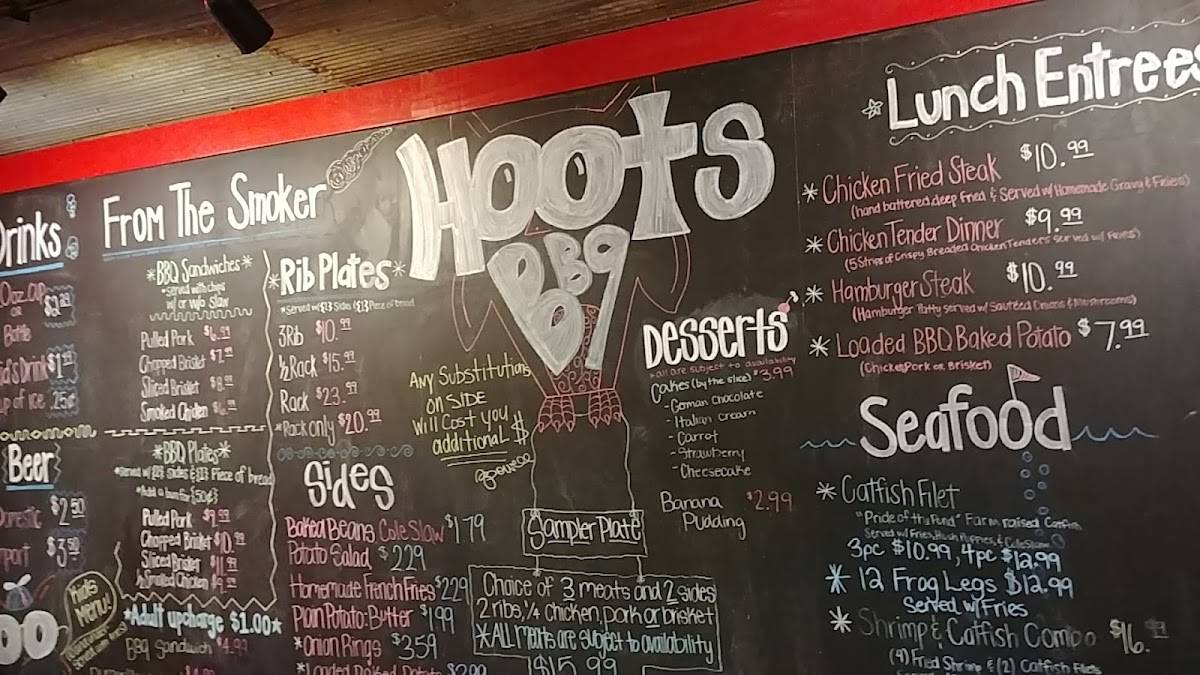 Hoots
BBQ
Drinks
Bottle
$1
.25¢
Beer
$2.50
$3.50
Kids Menu!
From The Smoker
*BBQ Sandwiches*
*served with chips
w/ or w/o Slaw
Pulled Pork
Chopped Brisket
Sliced Brisket
Smoked Chicken
*BBQ Plates*
Piece of bread
Pulled Pork $9.99
Chopped Brisket $10.99
Sliced Brisket $11.99
Smoked Chicken $9.99
*Adult upcharge $1.00*
BBQ Sandwich $4.99
*Rib Plates*
3 Rib $10.99
½ Rack $15.99
Rack $23.99
*Rack only $20.99
Sides
Baked Beans Cole Slaw $1 79
Potato Salad $2 29
Homemade French Fries $2 29
Plain Potato: Butter $1 99
*Onion Rings $3 59
*Loaded Baked Potato
Any Substitutions
on SIDE
Will Cost you
additional $
Sampler Plate
Choice of 3 meats and 2 sides
2 ribs, ¼ chicken, pork or brisket
*ALL meats are subject to availability
$15.99
Desserts
*all are subject to availability
Cakes (by the slice) $3.99
- German Chocolate
- Italian Cream
- Carrot
- Strawberry
- Cheesecake
Banana Pudding $2.99
Lunch Entrees
*Chicken Fried Steak $10.99
(hand battered deep Fried & Served w/ Homemade Gravy & Fries)
*Chicken Tender Dinner $9.99
(5 Strips of Crispy Breaded Chicken Tenders served w/ Fries)
*Hamburger Steak $10.99
(Hamburger Patty served w/ Sautéed Onions & Mushrooms)
*Loaded BBQ Baked Potato $7.99
(Chicken, Pork or Brisket)
Seafood
*Catfish Filet
"Pride of the Pond" Farm raised Catfish
Served w/ Fries, Hush Puppies, & Cole Slaw
3pc $10.99, 4pc $12.99
*12 Frog Legs $12.99
Served w/ Fries
*Shrimp & Catfish Combo $16.99
(9) Fried Shrimp & (2) Catfish Filets